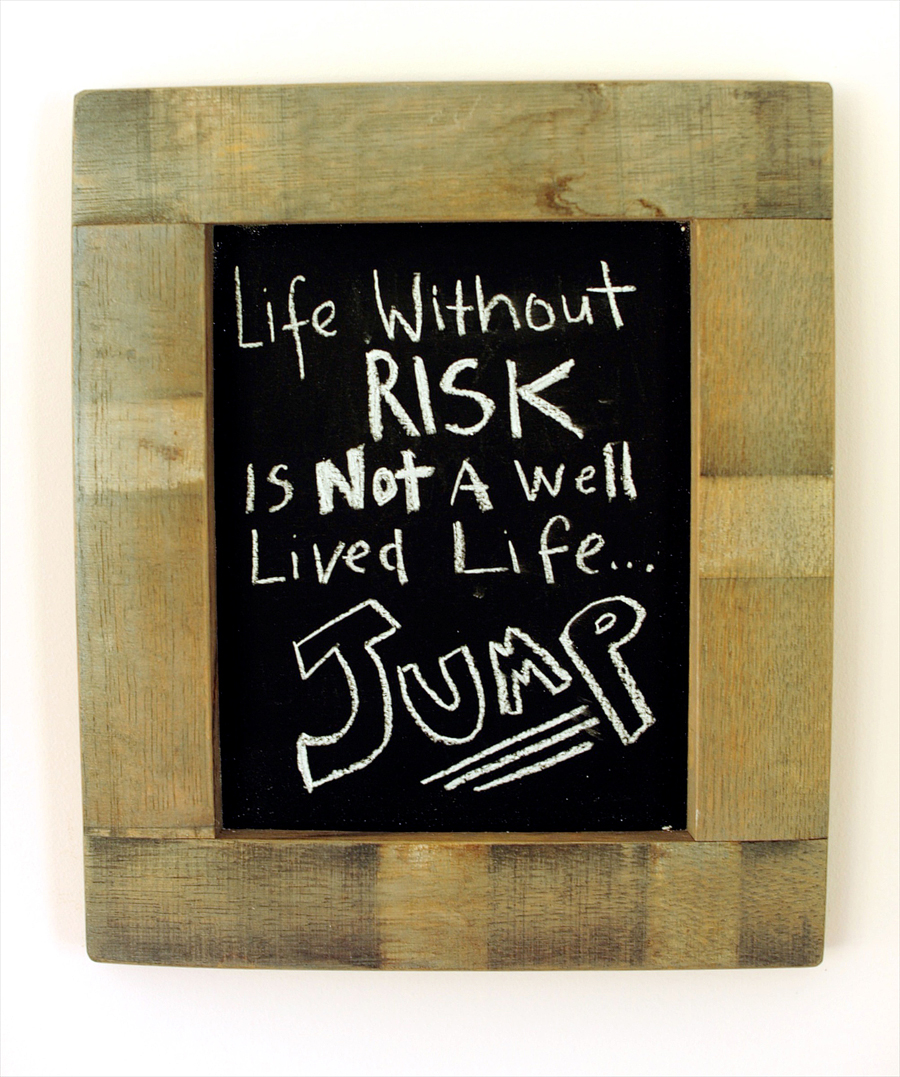 Life Without
RISK
Is Not A Well
Lived Life...
JUMP